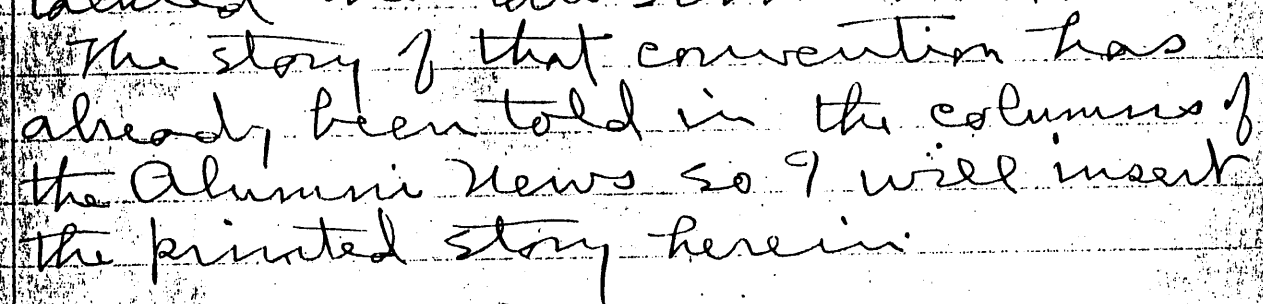 The story of that convention has
already been told in the columns of
the Alumni News so I will insert
the printed story herein.